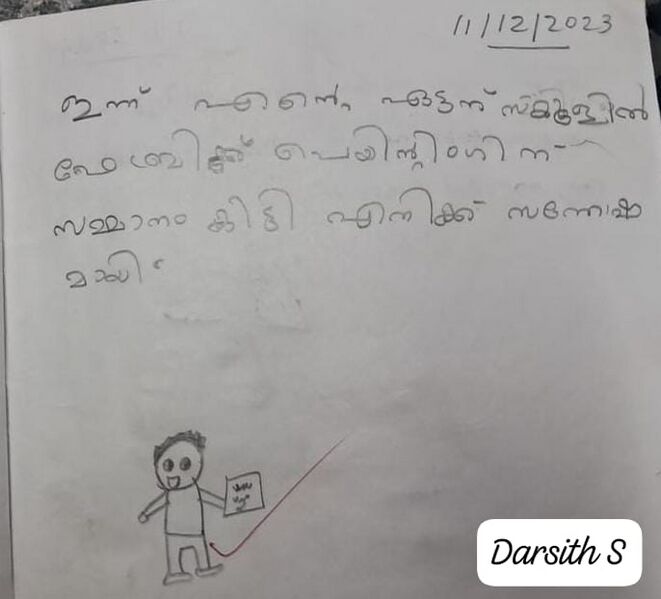 11/12/2023
ഇന്ന് എന്റെ ഏട്ടന് സ്കൂളിൽ
ഫേബ്രിക്ക് പെയിന്റിംഗിന്
സമ്മാനം കിട്ടി എനിക്ക് സന്തോഷ
മായി.
Darsith S